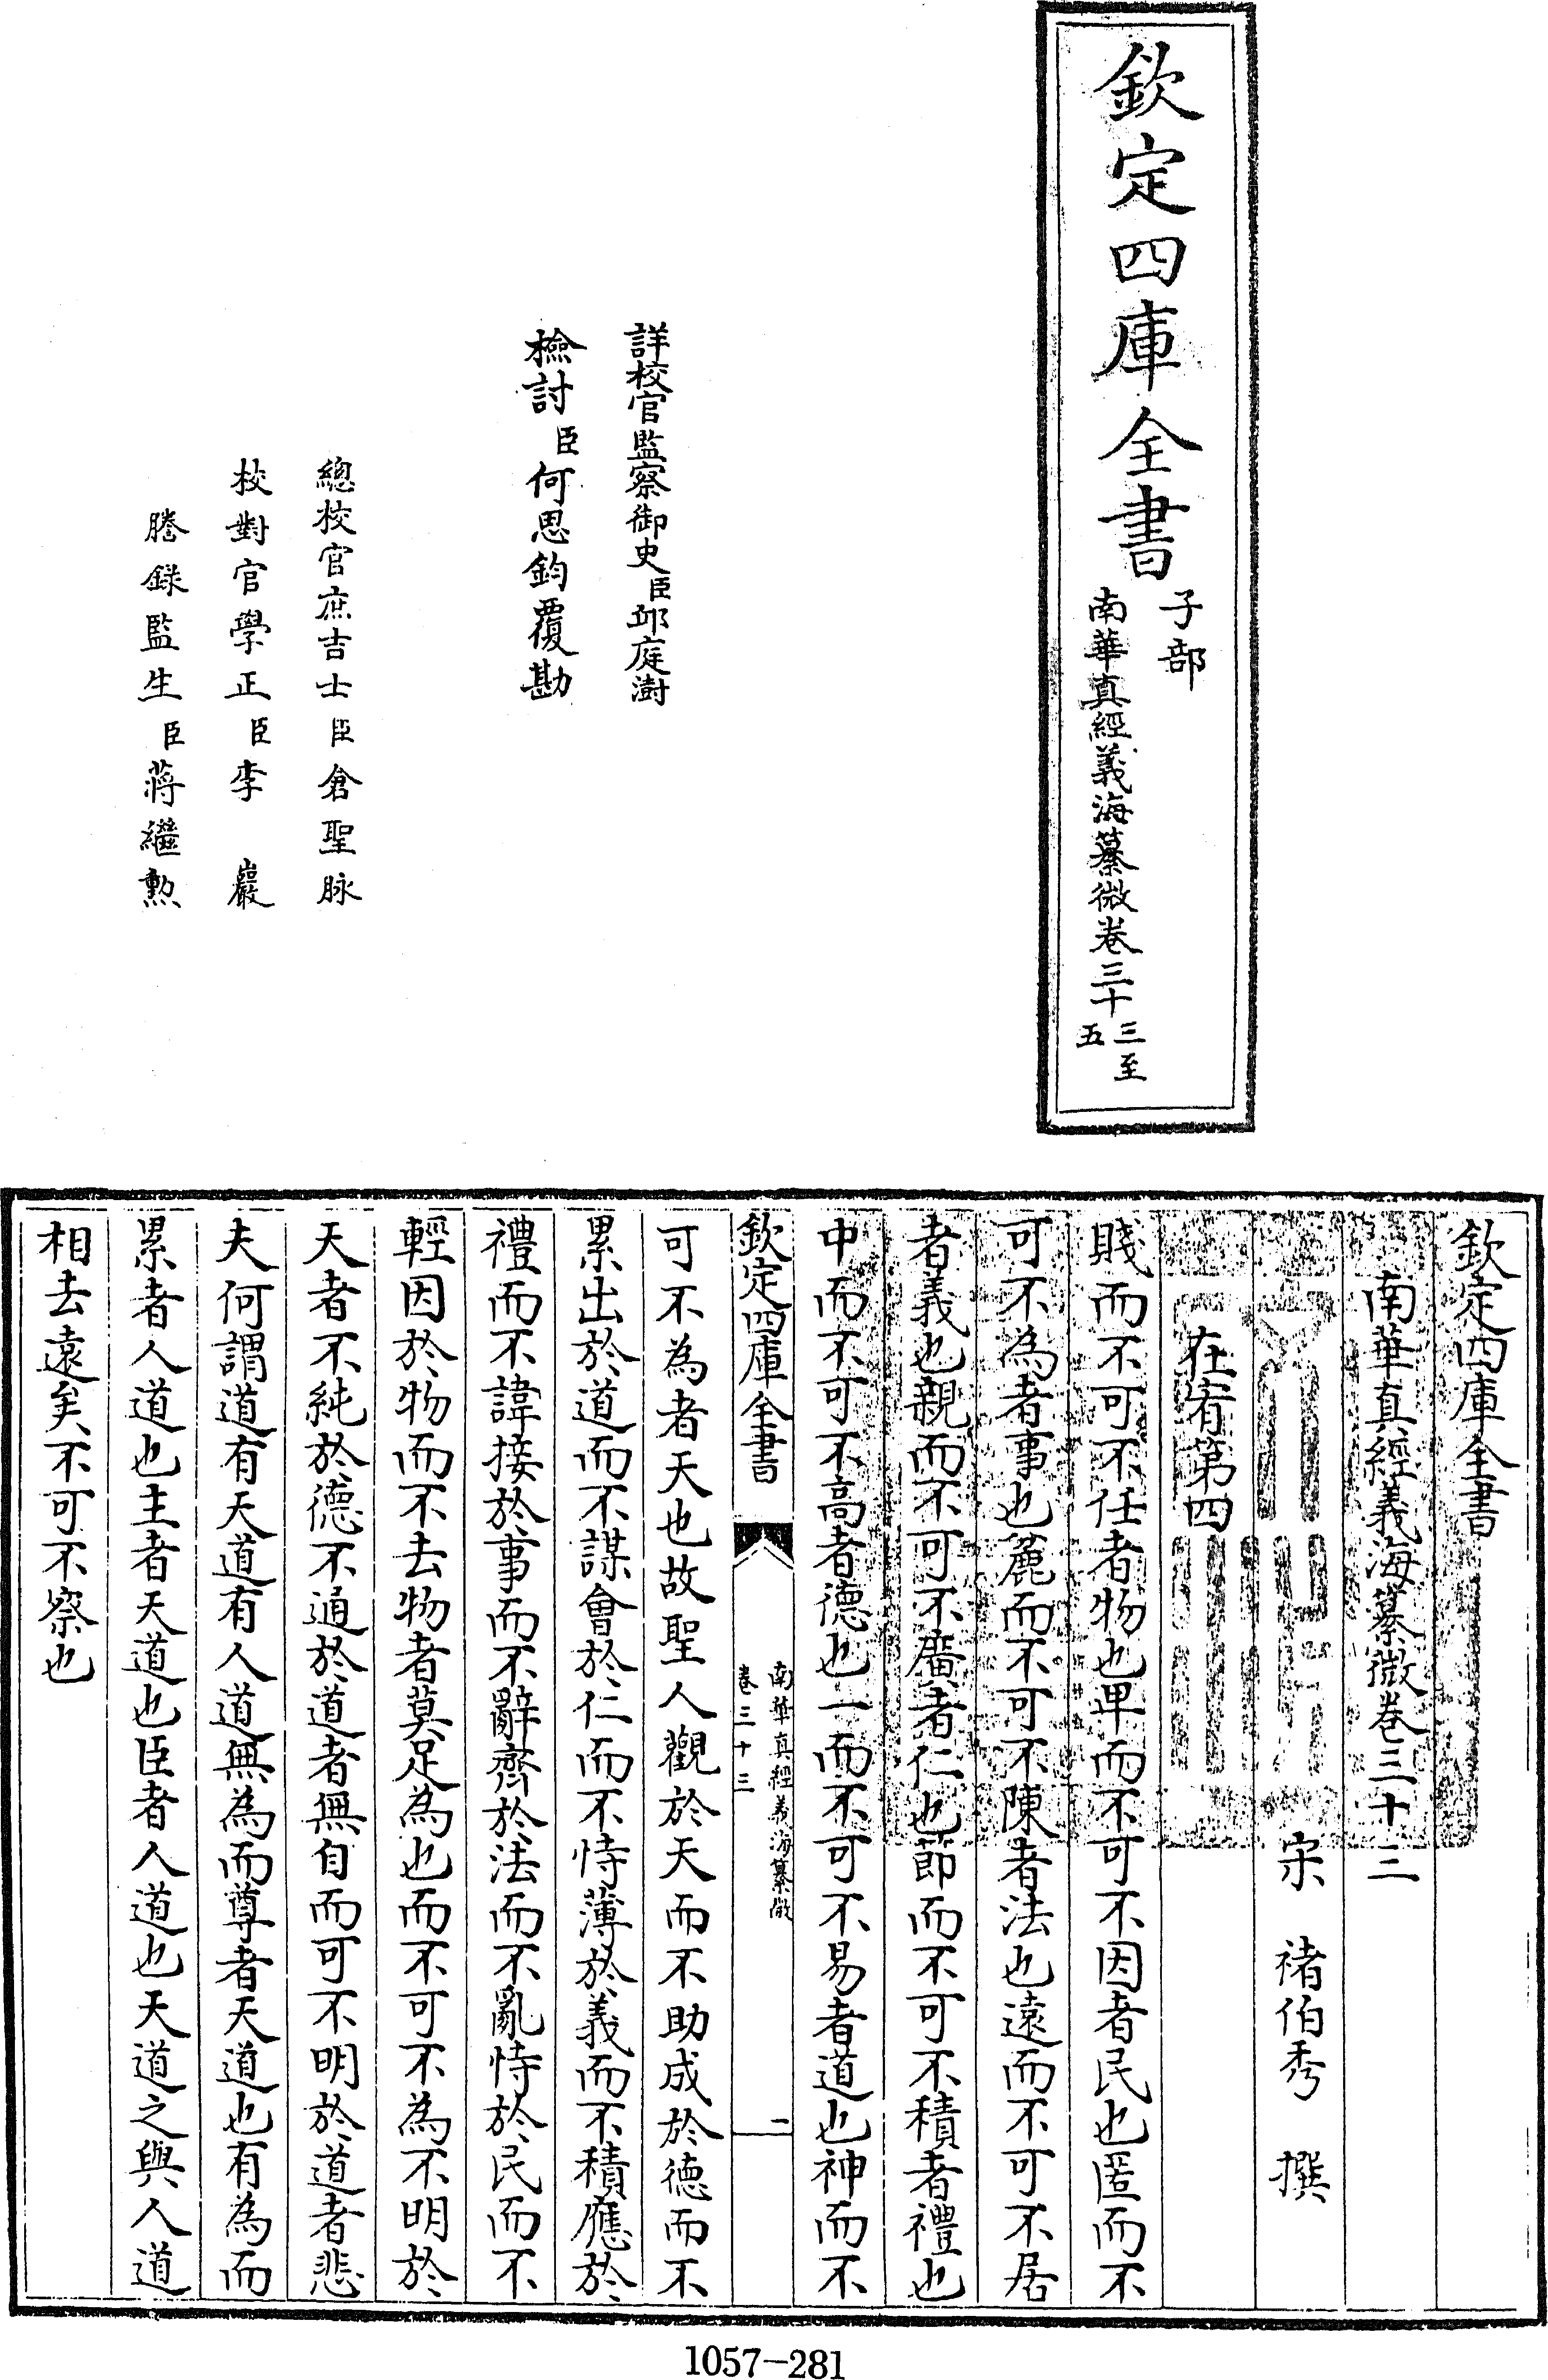 欽定四庫全書
子部
南華真經義海纂微卷三十
三至
五
詳校官監察御史臣邱庭澍
檢討臣何思鈞覆勘
總校官庶吉士臣倉聖脉
校對官學正臣李巖
謄錄監生臣蔣繼勲
欽定四庫全書
南華真經義海纂微卷三十三
宋 褚伯秀 撰
在宥第四
賤而不可不任者物也卑而不可不因者民也匿而不
可不為者事也麄而不可不陳者法也遠而不可不居
者義也親而不可不廣者仁也節而不可不積者禮也
中而不可不高者德也一而不可不易者道也神而不
欽定四庫全書
南華真經義海纂微
卷三十三
一
可不為者天也故聖人觀於天而不助成於德而不
累出於道而不謀會於仁而不恃薄於義而不積應於
禮而不諱接於事而不辭齊於法而不亂恃於民而不
輕因於物而不去物者莫足為也而不可不為不明於
天者不純於德不通於道者無自而可不明於道者悲
夫何謂道有天道有人道無為而尊者天道也有為而
累者人道也主者天道也臣者人道也天道之與人道
相去遠矣不可不察也
1057-281